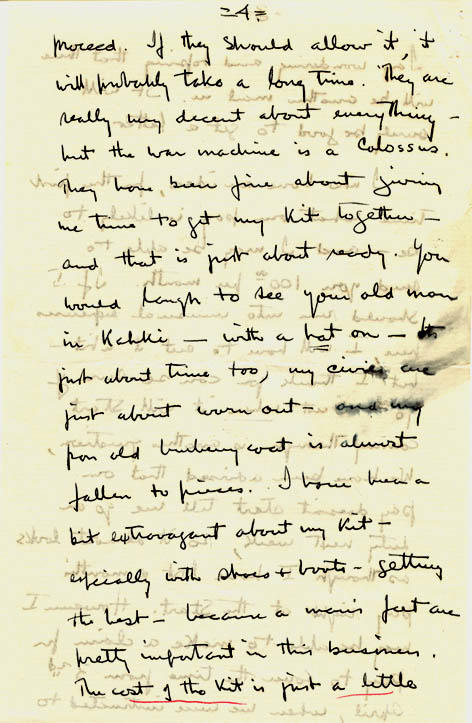 =4=
proceed. If they should allow it, it
will probably take a long time. They are
really very decent about everything –
but the war machine is a Colossus.
They have been fine about giving
me time to get my kit together –
and that is just about ready. You
would laugh to see your old man
in Kahki – with a hat on – Its
just about time too, my civies are
just about worn out – and my
poor old burberry coat is almost
fallen to pieces. I have been a
bit extravagant about my kit –
especially with shoes + boots – getting
the best – because a man's feet are
pretty important in this business.
The cost of the kit is just a little